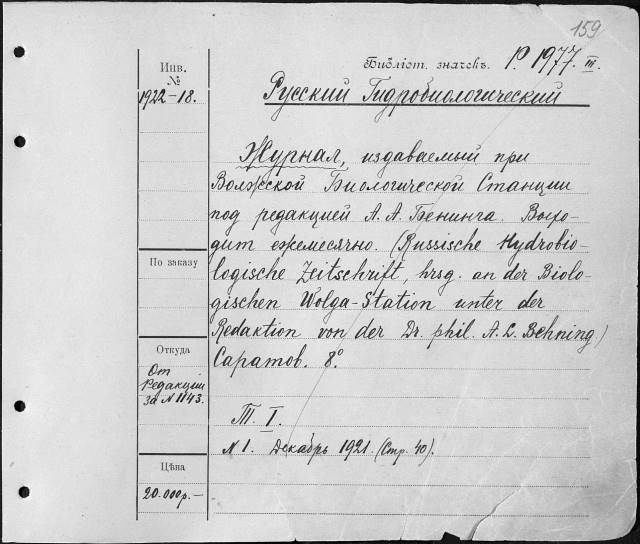 159
Инв.
№
1922-18.
Библіот. значекъ. P. 1977. III.
Русский Гидробиологический
Журнал, издаваемый при
Волжской Биологической Станции
под редакцией А. Л. Бенинга. Выхо-
дит ежемесячно. (Russische Hydrobio-
logische Zeitschrift, hrsg. an der Biolo-
gischen Wolga-Station unter der
Redaktion von der Dr. phil. A. L. Behning.)
Саратов. 8°.
По заказу
Откуда
От
Редакции
за N 1143.
Т. I.
N 1. Декабрь 1921. (Стр. 40).
Цѣна
20.000р.-